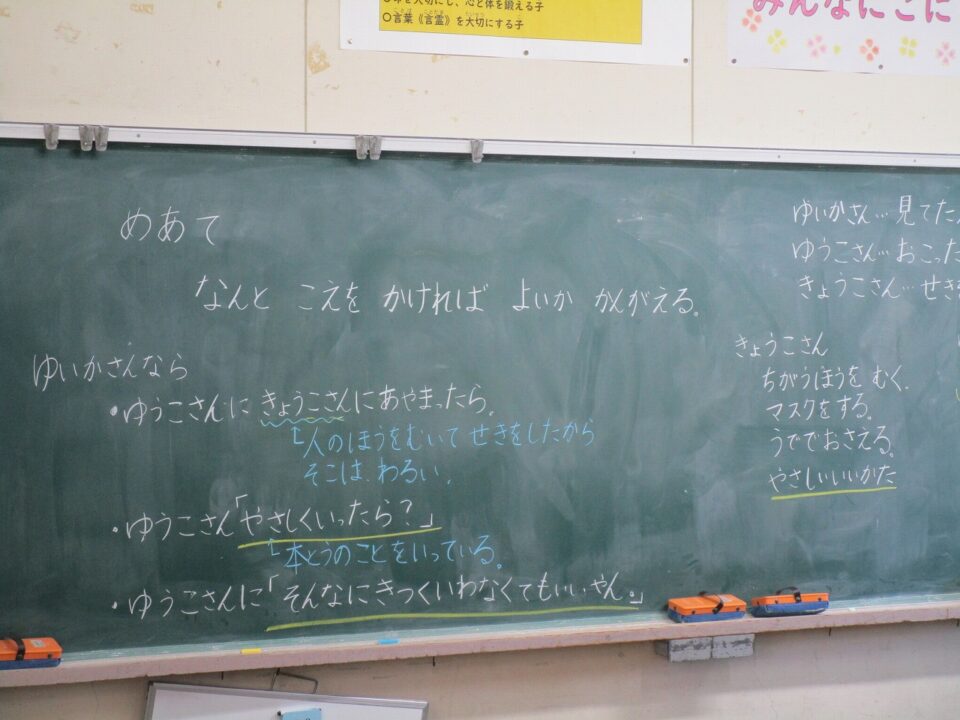 心と体を鍛える子
○言葉《言霊》を大切にする子
みんなにこに
めあて
なんと こえを かければ よいか かんがえる。
ゆいかさんなら
・ゆうこさんに きょうこさんにあやまったら。
人のほうをむいて せきをしたから
そこは わるい。
・ゆうこさん「やさしくいったら？」
本とうのことをいっている。
・ゆうこさんに「そんなにきつくいわなくてもいいやん。」
ゆいかさん…見てた
ゆうこさん…おこった
きょうこさん…せき
きょうこさん
ちがうほうを むく。
マスクをする。
うででおさえる。
やさしいいいかた